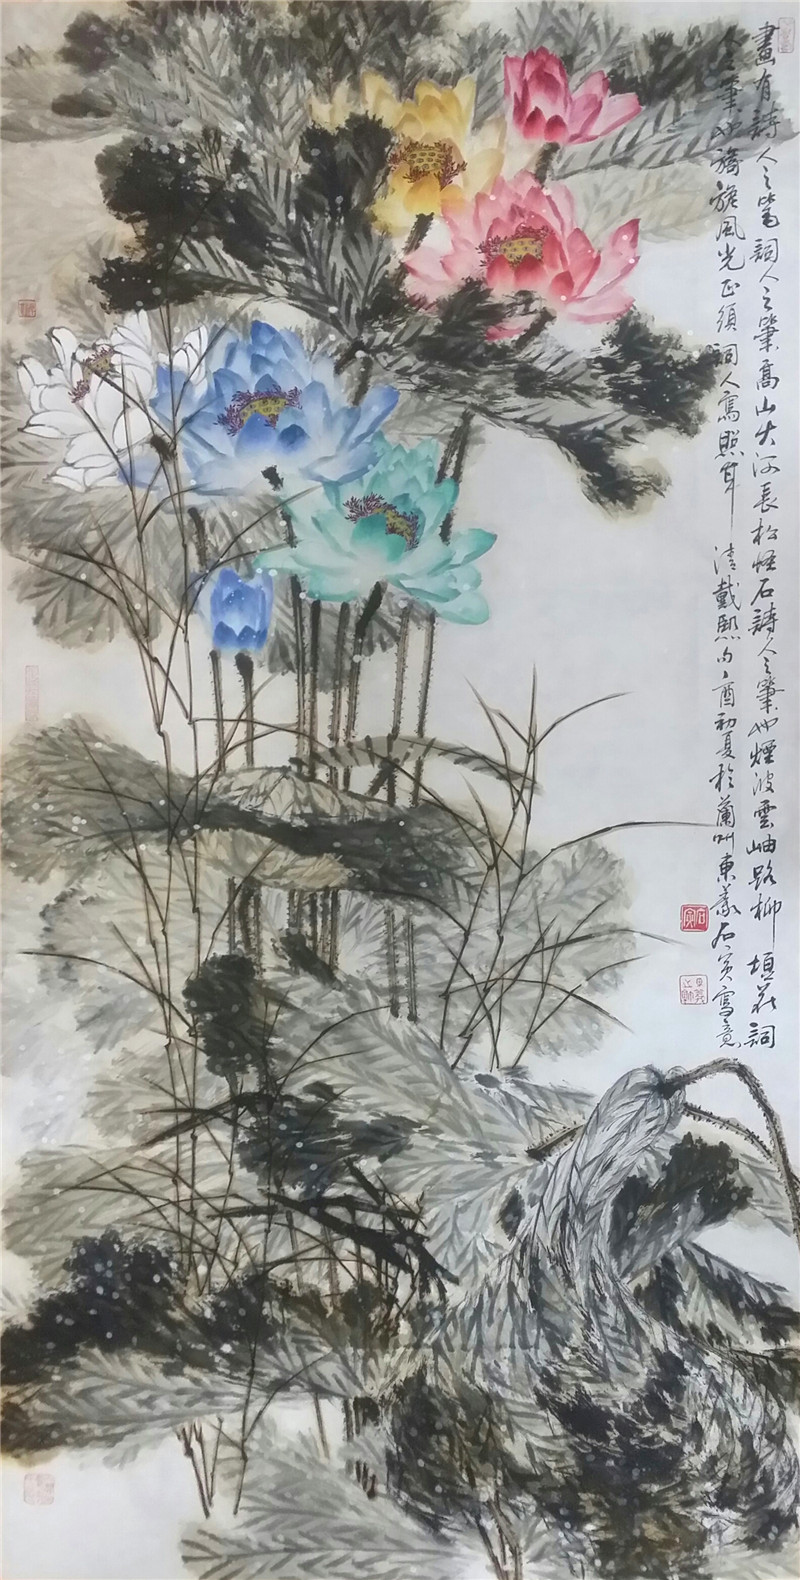 畫有詩人之筆詞人之筆高山大河長松怪石詩人之筆也煙波雲岫路柳垣花詞
人之筆也旖旎風光正須詞人寫照耳 清戴熙句丁酉初夏於蘭州東義石寅寫意